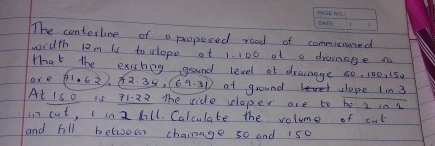 PAGE NO.:
DATE: / /
The centerline of a proposed road of commissioned
width 12m is to slope at 1.100 at a drainage so
that the existing ground level at drainage 50, 100, 150
are 71.62, 72.34, 69.31 at ground slope 1 in 3
At 150 is 71.22 the side slopes are to be 1 in 1
in cut, 1 in 2 fill. Calculate the volume of cut
and fill between chainage 50 and 150